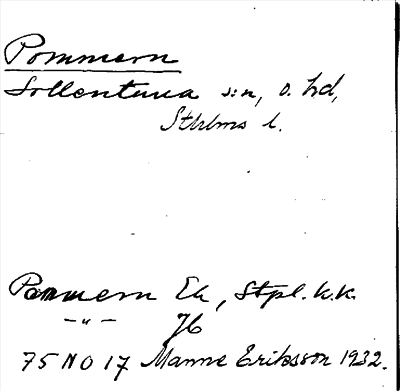 Pommern
Sollentuna s:n, o. hd,
Sthlms l.
Pommern Ek, Stpl. k.k.
—"— Jb
75 NO 17 Manne Eriksson 1932.